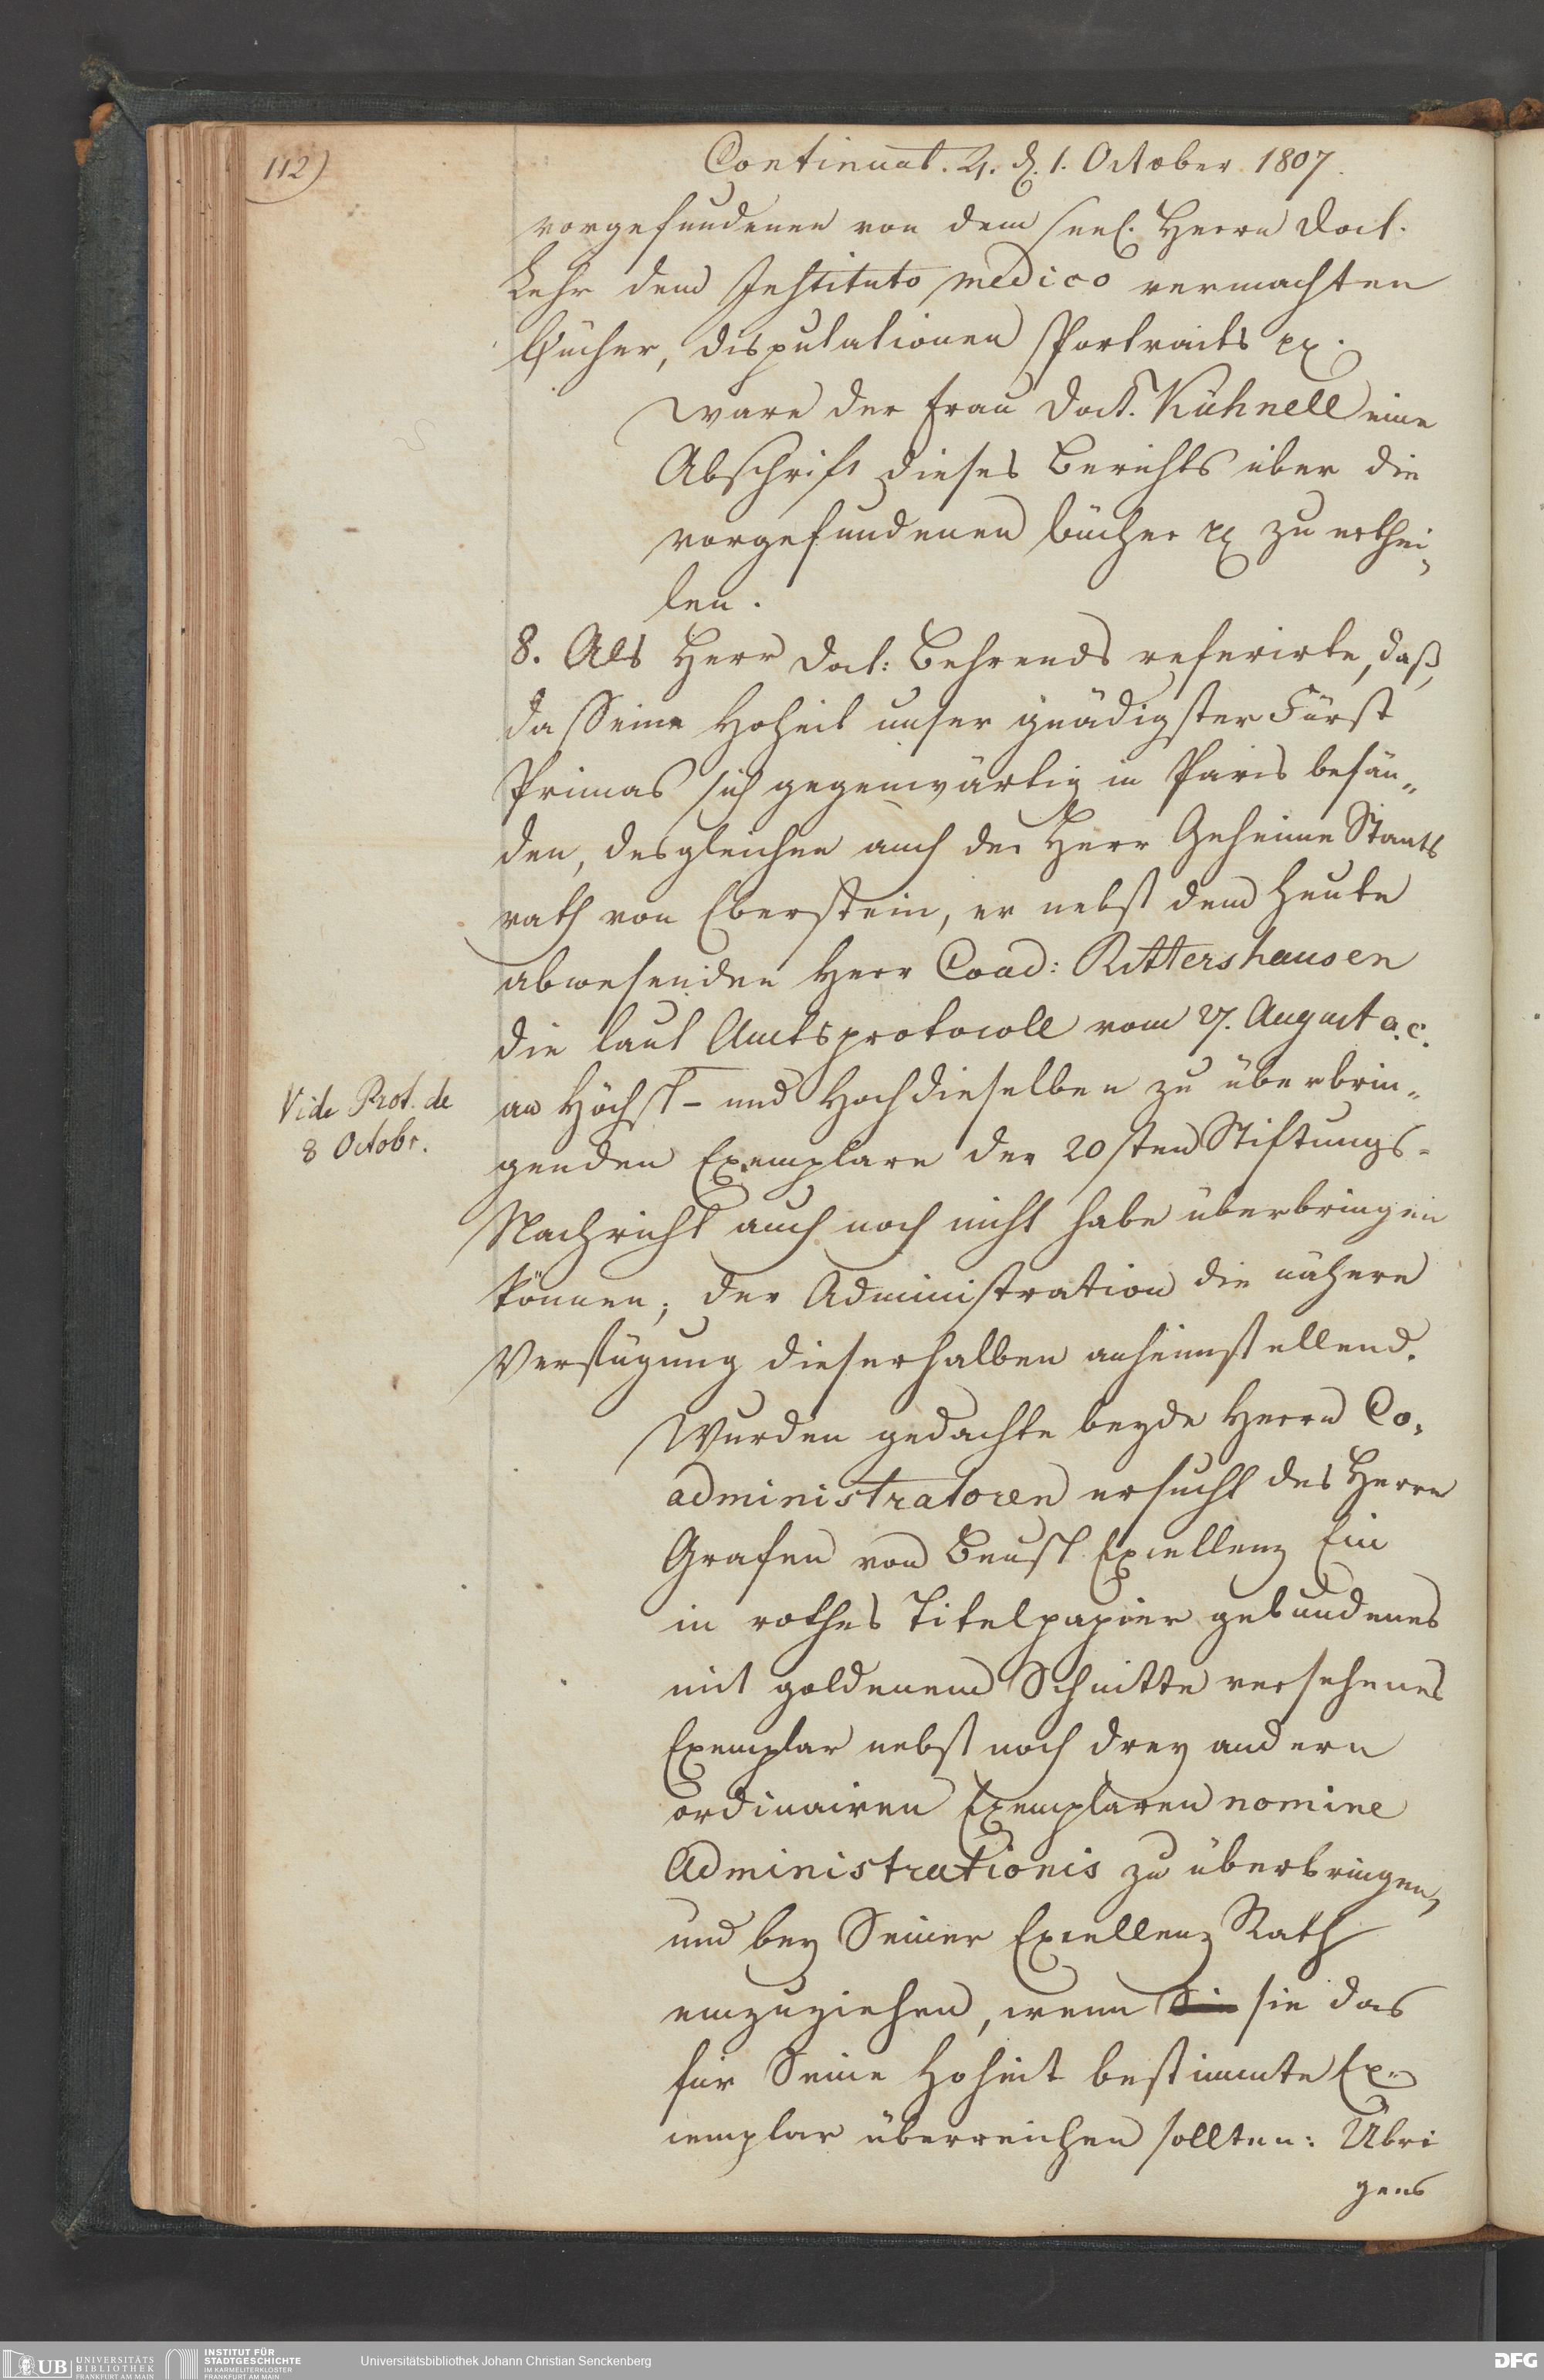 112)
Continuat. ♃. d. 1. October 1807.
vorgefundenen von dem seel. Herrn Doct.
Lehr dem Instituto medico vermachten
Bücher, Disputationen Portraits
ware der Frau Doct. Kühnell eine
Abschrift dieses Berichts über die
vorgefundenen Bücher zu erthei-
len.
8. Als Herr Doct: Behrends referirte, daß,
da Seine Hoheit unser gnädigster Fürst
Primas sich gegenwärtig in Paris befän-
den, desgleichen auch der Herr Geheime Staats
rath von Eberstein, er nebst dem heute
abwesenden Herr Coad: Rittershausen
die laut Amtsprotocoll vom 27. August a. c.
an Höchst- und Hochdieselben zu überbrin-
Vide Prot. de
8 Octobr.
genden Exemplare der 20sten Stiftungs-
Nachricht auch noch nicht habe überbringen
können; der Administration die nähere
Verfügung dieserhalben anheimstellend.
Wurden gedachte beyde Herrn Co-
administratoren ersucht des Herrn
Grafen von Beust Excellenz Ein
in rothes Titelpapier gebundenes
mit goldenem Schnitte versehenes
Exemplar nebst noch drey andern
ordinairen Exemplaren nomine
Administrationis zu überbringen,
und bey Seiner Excellenz Rath
einzuziehen, wenn Sie sie das
für Seine Hoheit bestimmte Ex-
emplar überreichen sollten: Übri
gens
UB UNIVERSITÄTS
BIBLIOTHEK
FRANKFURT AM MAIN
INSTITUT FÜR
STADTGESCHICHTE
IM KARMELITERKLOSTER
FRANKFURT AM MAIN
Universitätsbibliothek Johann Christian Senckenberg
DFG